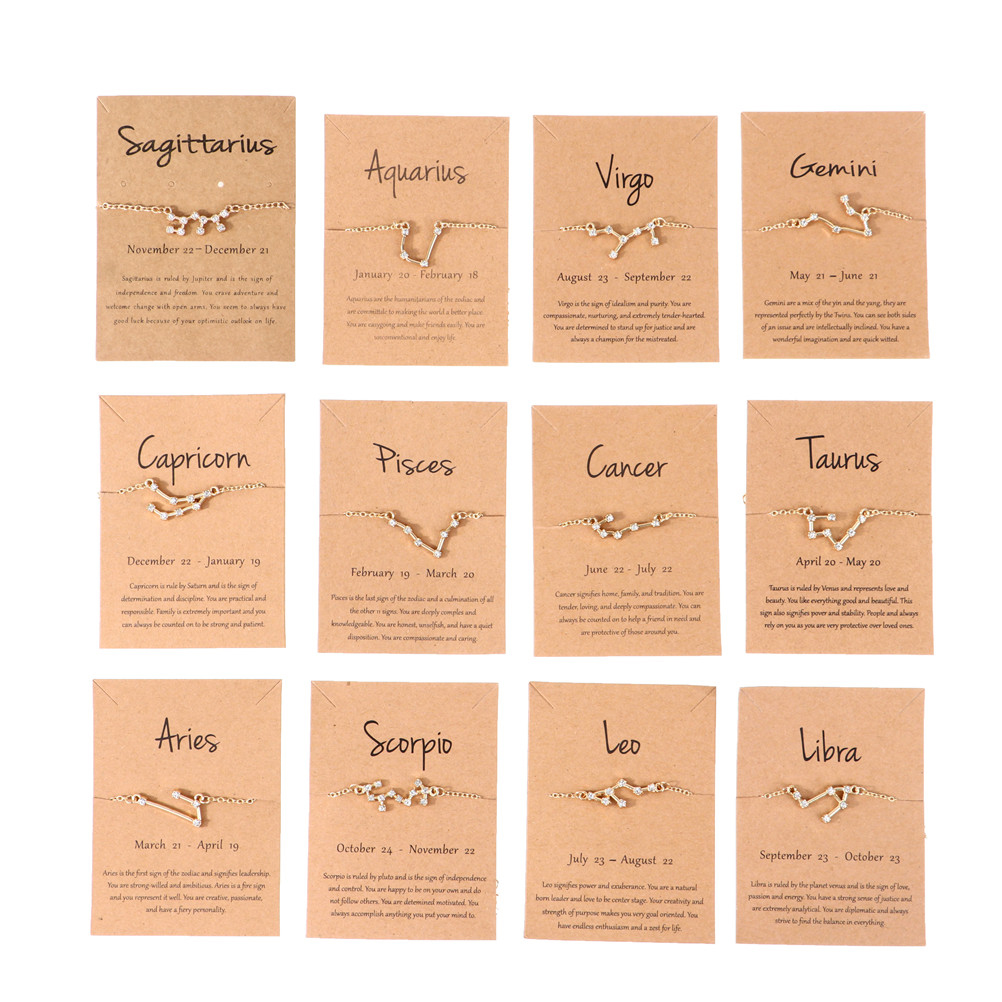 Sagittarius
November 22 – December 21
Sagittarius is ruled by Jupiter and is the sign of
independence and freedom. You crave adventure and
welcome change with open arms. You seem to always have
good luck because of your optimistic outlook on life.
Aquarius
January 20 - February 18
Aquarius are the humanitarians of the zodiac and
are committie to making the world a better place.
You are easygoing and make friends easily. You are
unconventional and enjoy life.
Virgo
August 23 - September 22
Virgo is the sign of idealism and purity. You are
compassionate, nurturing, and extremely tender-hearted.
You are determined to stand up for justice and are
always a champion for the mistreated.
Gemini
May 21 – June 21
Gemini are a mix of the yin and the yang, they are
represented perfectly by the Twins. You can see both sides
of an issue and are intellectually inclined. You have a
wonderful imagination and are quick witted.
Capricorn
December 22 - January 19
Capricorn is rule by Saturn and is the sign of
determination and discipline. You are practical and
responsible. Family is extremely important and you
can always be counted on to be strong and patient.
Pisces
February 19 - March 20
Pisces is the last sign of the zodiac and a culmination of all
the other 11 signs. You are deeply complex and
knowledgeable. You are honest, unselfish, and have a quiet
disposition. You are compassionate and caring.
Cancer
June 22 - July 22
Cancer signifies home, family, and tradition. You are
tender, loving, and deeply compassionate. You can
always be counted on to help a friend in need and
are protective of those around you.
Taurus
April 20 - May 20
Taurus is ruled by Venus and represents love and
beauty. You like everything good and beautiful. This
sign also signifies pover and stability. People and always
rely on you as you are very protective over loved ones.
Aries
March 21 - April 19
Aries is the first sign of the zodiac and signifies leadership.
You are strong-willed and ambitious. Aries is a fire sign
and you represent it well. You are creative, passionate,
and have a fiery personality.
Scorpio
October 24 - November 22
Scorpio is ruled by pluto and is the sign of independence
and control. You are happy to be on your own and do
not follow others. You are detemined motivated. You
always accomplish anything you put your mind to.
Leo
July 23 – August 22
Leo signifies power and exuberance. You are a natural
born leader and love to be center stage. Your creativity and
strength of purpose makes you very goal oriented. You
have endless enthusiasm and a zest for life.
Libra
September 23 - October 23
Libra is ruled by the planet venus and is the sign of love,
passion and energy. You have a strong sense of justice and
are extremely analytical. You are diplomatic and always
strive to find the balance in everything.